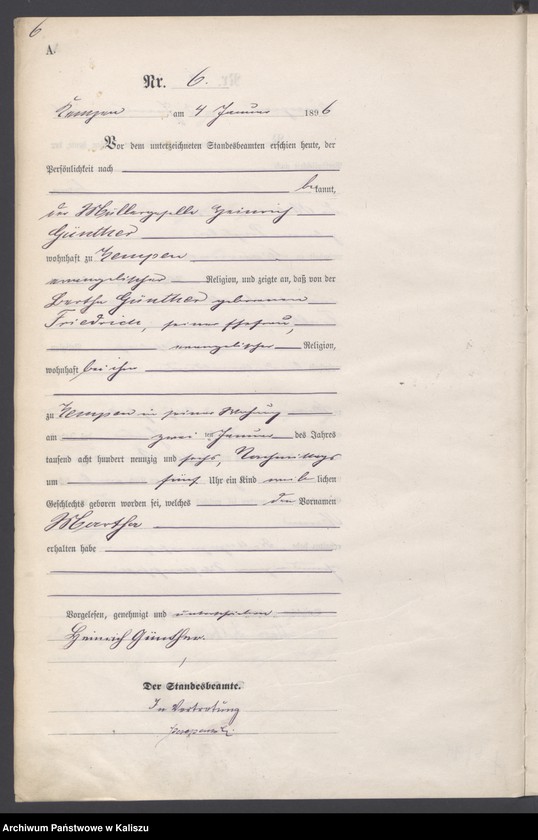 6
A.
Nr. 6.
Kempen am 4 Januar 1896
Vor dem unterzeichneten Standesbeamten erschien heute, der
Persönlichkeit nach
bekannt,
der Müllergeselle Heinrich
Günther
wohnhaft zu Kempen
evangelischer Religion, und zeigte an, daß von der
Bertha Günther geborenen
Friedrich, seiner Ehefrau,
evangelischer Religion,
wohnhaft bei ihm
zu Kempen in seiner Wohnung
am zwei ten Januar des Jahres
tausend acht hundert neunzig und sechs, Nachmittags
um fünf Uhr ein Kind weiblichen
Geschlechts geboren worden sei, welches den Vornamen
Martha
erhalten habe
Vorgelesen, genehmigt und unterschrieben
Heinrich Günther.
Der Standesbeamte.
In Vertretung
Archiwum Państwowe w Kaliszu